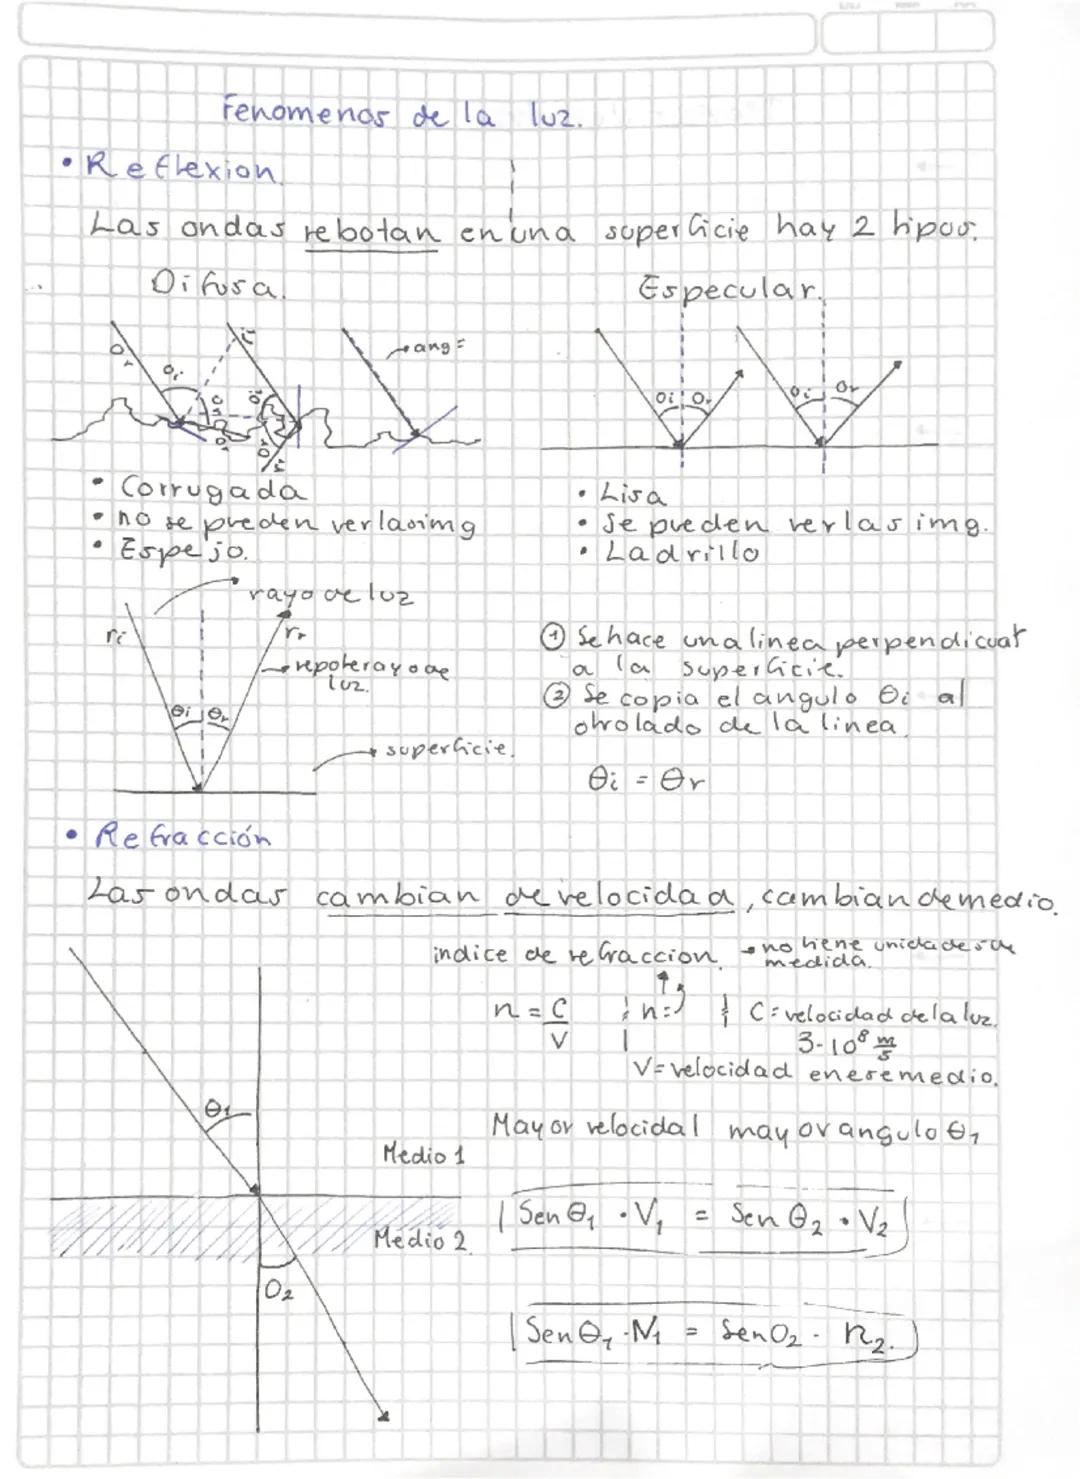 Fenomenos de la luz.
• Reflexion.
Las ondas rebotan en una superficie hay 2 tipos.
Difusa.
Especular.
ang =
θi θr
θi θr
• Corrugada
• no se pueden ver las img
• Espejo.
• Lisa
• Se pueden ver las img.
• Ladrillo
rayo de luz
ri
rr
superficie.
θi θr
① Se hace una linea perpendicular
a la superficie.
② Se copia el angulo θi al
otro lado de la linea.
θi = θr
• Refracción
Las ondas cambian de velocidad, cambian de medio.
indice de refraccion. → no tiene unidades de
medida.
n = C/V
n =
C = velocidad de la luz.
3·10⁸ m/s
V = velocidad en ese medio.
Mayor velocidad mayor angulo θ1
θ1
Medio 1
Medio 2
θ2
Sen θ1 · V1 = Sen θ2 · V2
Sen θ1 · N1 = Sen θ2 · n2.